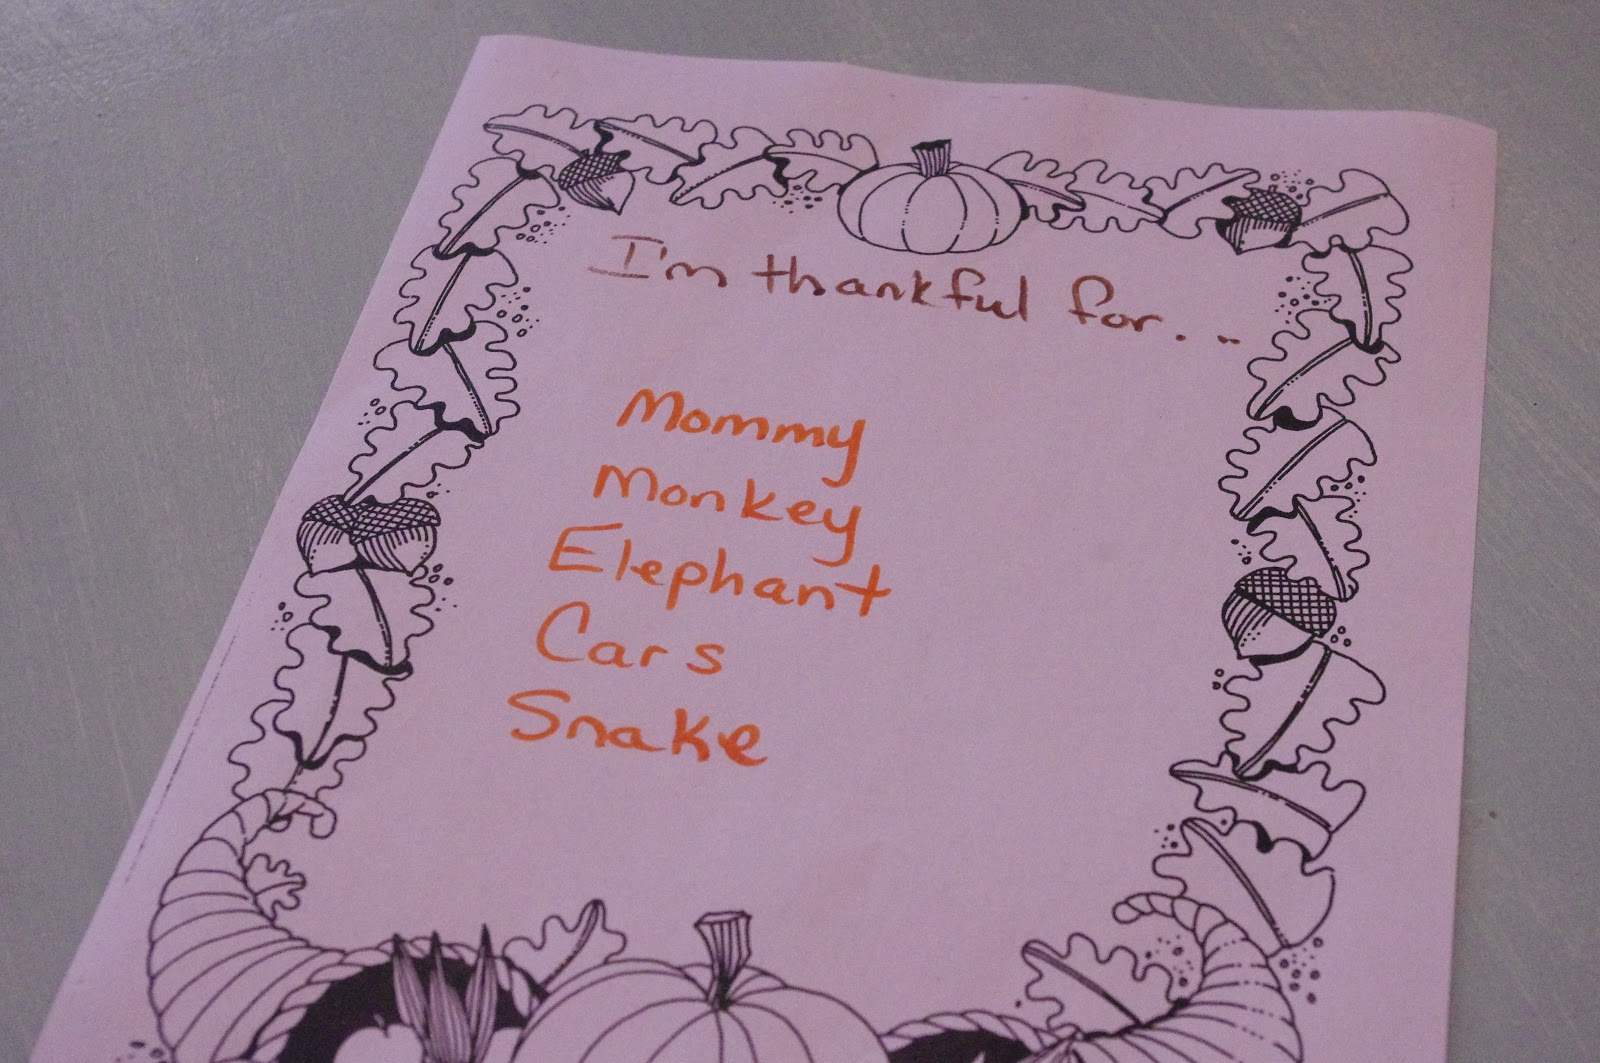 I'm thankful for...
Mommy
Monkey
Elephant
Cars
Snake